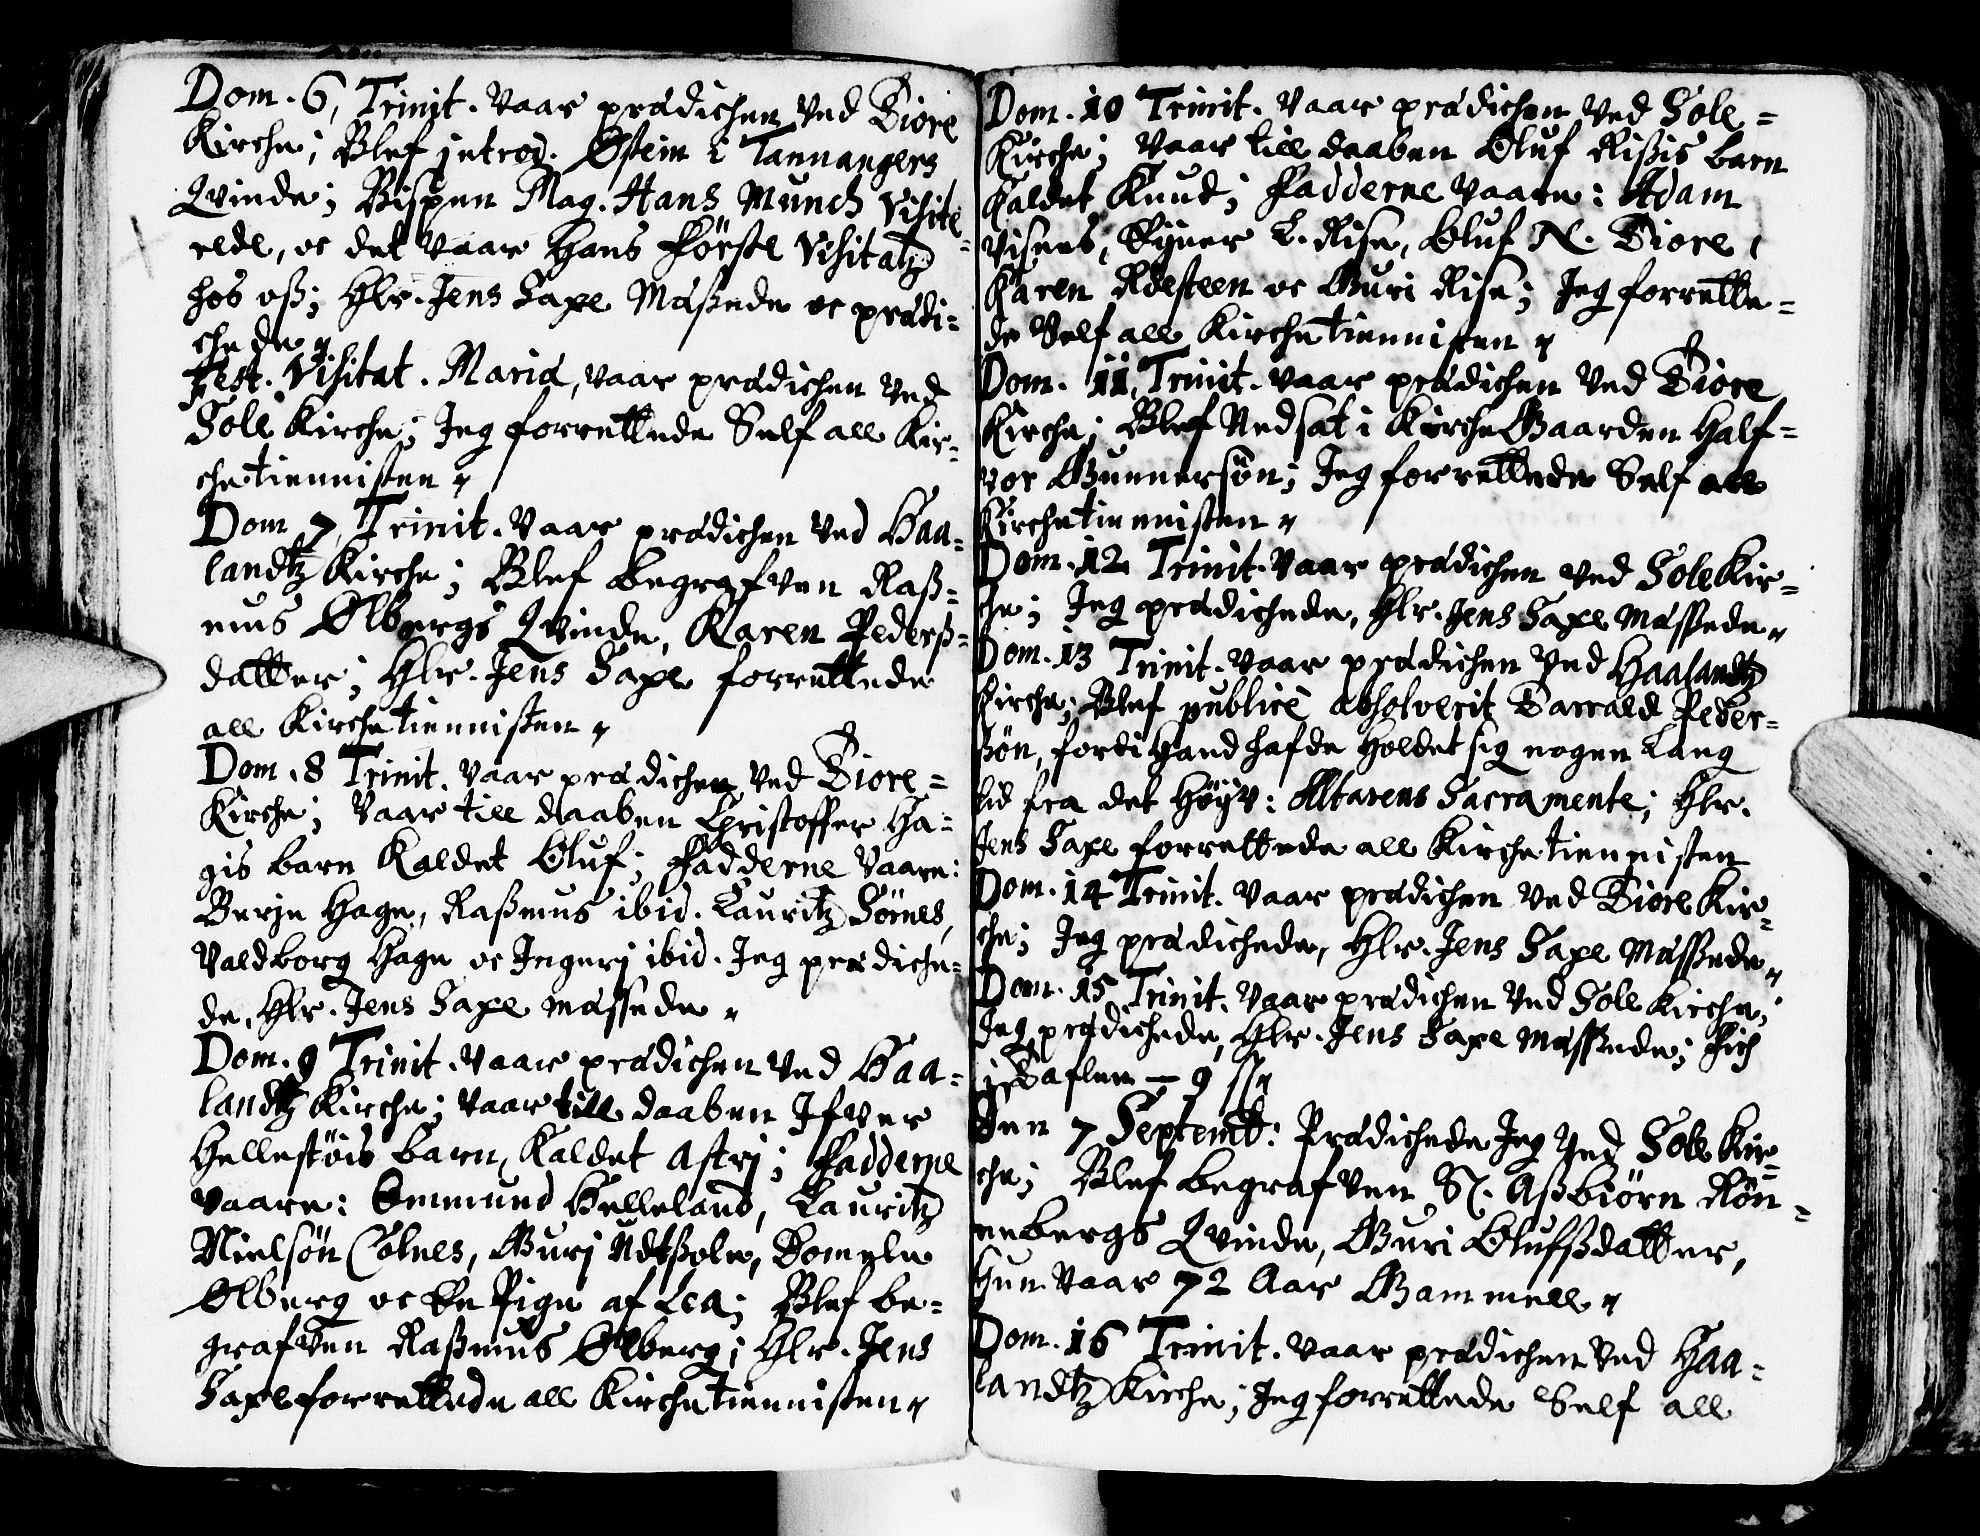 Dom. 6, Trinit. vaar prædichen ved Tiore
Kirche; Blef introd. Østein i Tannangers
Qvinde; Bispen Mag. Hans Munch visite-
rede, oc det vaar Hans förste visitatz
hos oß; Hlr. Jens Saxe Maßede oc prædi-
chede.
Fest. Visitat. Mariæ, vaar prædichen ved
Sole Kirche; Jeg forrettede Self all Kir-
chetiennisten.
Dom. 7, Trinit. vaar prædichen ved Haa-
landtz Kirche; Blef begrafven Raß-
mus Ølbergs Qvinde, Karen Pederß-
datter; Hlr. Jens Saxe forrettede
all Kirchetiennisten.
Dom. 8 Trinit. vaar prædichen ved Tiore-
Kirche; vaar till daaben Christoffer Ha-
gis barn Kaldet Oluf; Fadderne vaare:
Berje Hage, Raßmus ibid. Lauritz Sömes,
Valdborg Hage oc Ingerj ibid. Jeg prædiche-
de, Hlr. Jens Saxe massede.
Dom. 9 Trinit. vaar prædichen ved Haa-
landtz Kirche; vaar till daaben Ifver
Hellestöis barn, Kaldet Astrj; Fadderne
vaare: Emmund Helleland, Lauritz
Nielsön Colnes, Gurj Udtßole, Bomele
Ølberg oc En Pige af Lea; Blef be-
grafven Raßmus Ølberg; Hlr. Jens
Saxe forrettede all Kirchetiennisten.
Dom. 10 Trinit. vaar prædichen ved Sole-
Kirche; vaar till daaben Oluf Rißis barn
Kaldet Knud; Fadderne vaare: Adam
Visnes, Ejner L. Rise, Oluf N. Tiore,
Karen Rdesteen oc Guri Rise; Jeg forrette-
de Self all Kirchetiennisten.
Dom. 11, Trinit. vaar prædichen ved Tiore
Kirche; Blef Nedsat i KircheGaarden Half-
vor Gunnersön; Jeg forrettede Self all
Kirchetiennisten.
Dom. 12 Trinit. vaar prædichen ved Sole Kir-
che; Jeg prædichede, Hlr. Jens Saxe Massede.
Dom. 13 Trinit. vaar prædichen ved Haalandtz
Kirche; Blef publicè absolverit Tarrald Peder-
ßön, fordi Hand hafde Holdet sig nogen Lang
tid fra det Höyv: Altarens Sacramente; Hlr.
Jens Saxe forrettede all Kirchetiennisten
Dom. 14 Trinit. vaar prædichen ved Tiore Kir-
che; Jeg prædichede, Hlr. Jens Saxe Massede.
Dom. 15 Trinit. vaar prædichen ved Sole Kirche;
Jeg prædichede, Hlr. Jens Saxe Massede; Fich
i Taflen — 9 ss
Den 7 Septemb: Prædichede Jeg ved Sole Kir-
che; Blef begrafven S. Aßbiörn Rön-
nebergs Qvinde, Guri Olufßdatter,
Hun vaar 72 Aar Gammell.
Dom. 16 Trinit. vaar prædichen ved Haa-
landtz Kirche; Jeg forrettede Self all